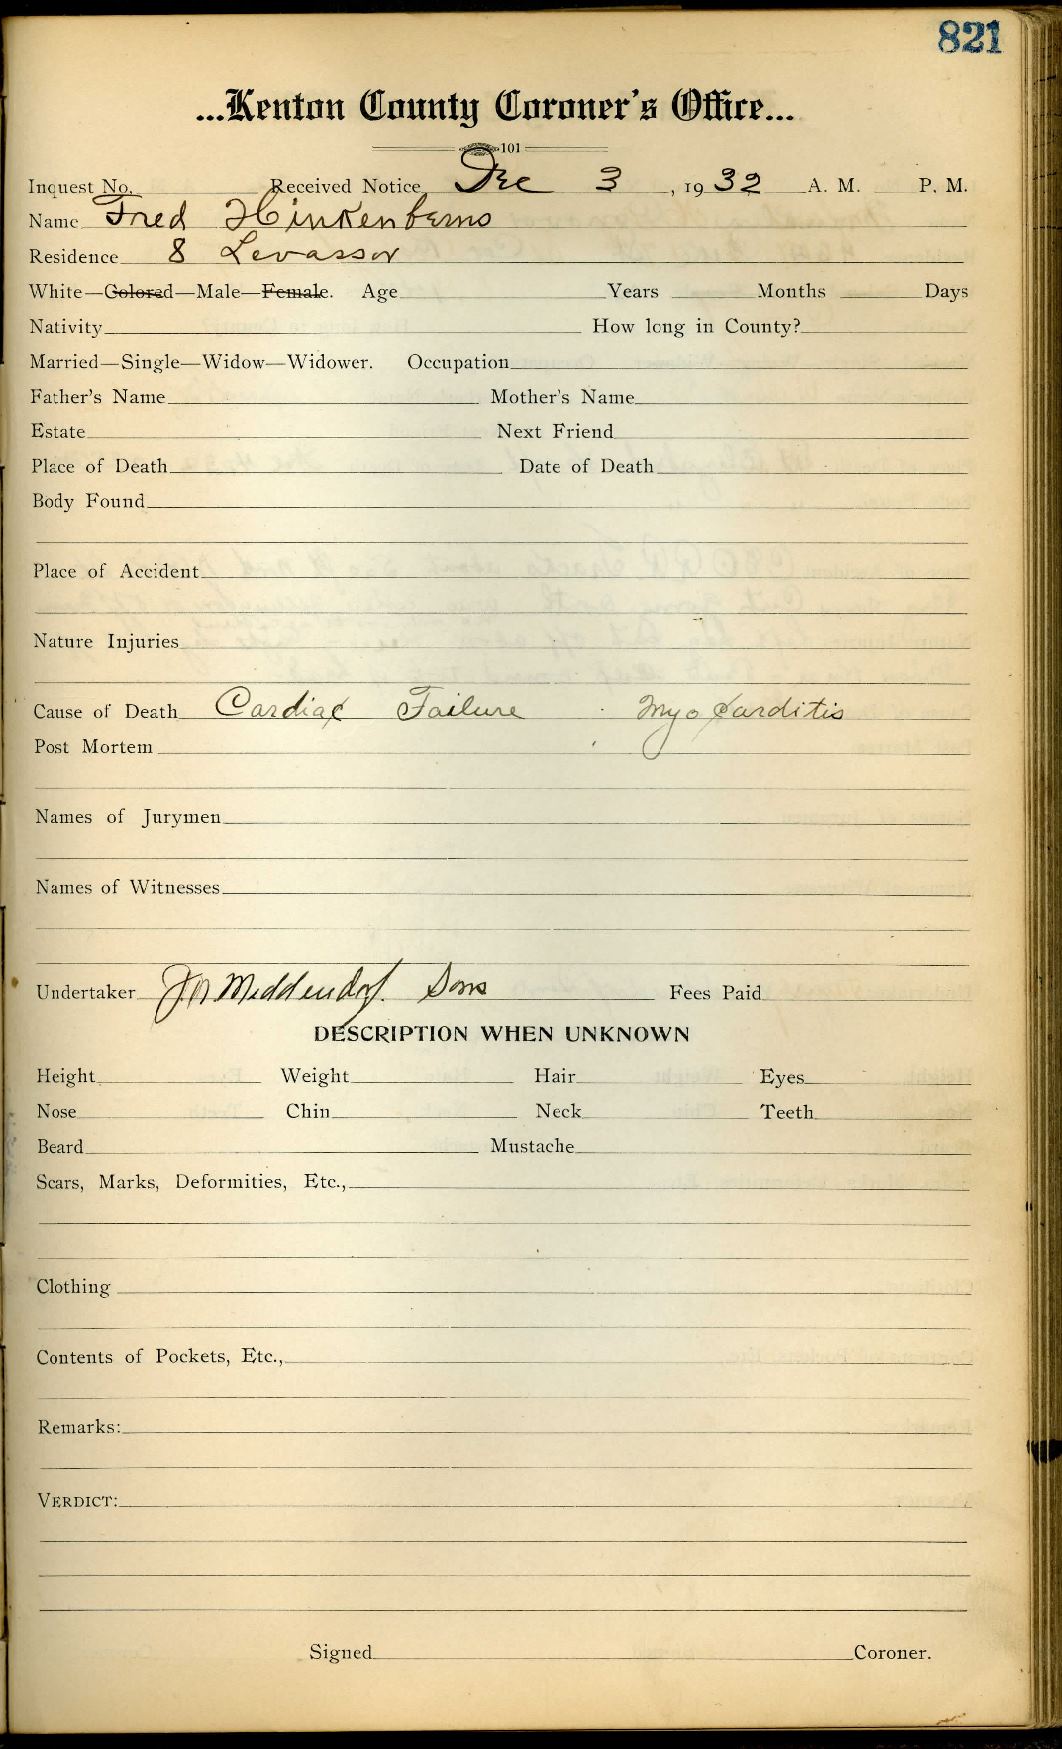 821
...Kenton County Coroner's Office...
101
Inquest No. Received Notice Dec 3, 1932 A. M. P. M.
Name Fred Hinkenberns
Residence 8 Levassor
White—Colored—Male—Female. Age Years Months Days
Nativity How long in County?
Married—Single—Widow—Widower. Occupation
Father's Name Mother's Name
Estate Next Friend
Place of Death Date of Death
Body Found
Place of Accident
Nature Injuries
Cause of Death Cardiac Failure Myo Carditis
Post Mortem
Names of Jurymen
Names of Witnesses
Undertaker Middendorf Sons Fees Paid
DESCRIPTION WHEN UNKNOWN
Height Weight Hair Eyes
Nose Chin Neck Teeth
Beard Mustache
Scars, Marks, Deformities, Etc.,
Clothing
Contents of Pockets, Etc.,
Remarks:
VERDICT:
Signed Coroner.